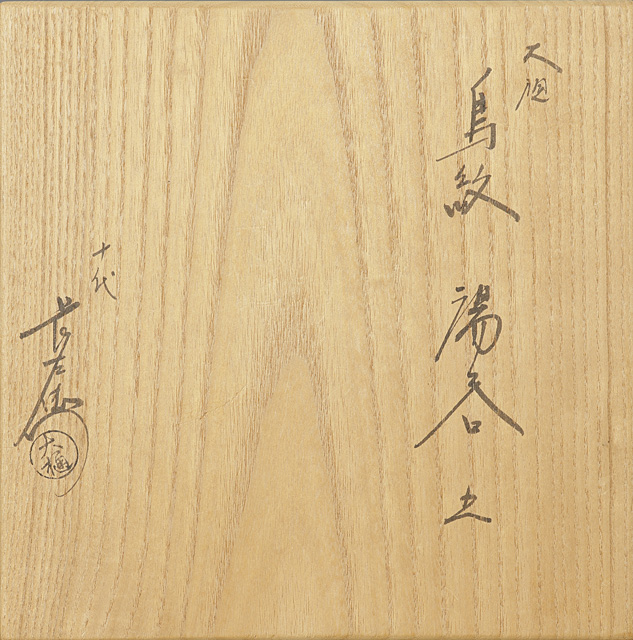 大樋
鳥紋 湯呑 五
十代
長左衛
大樋